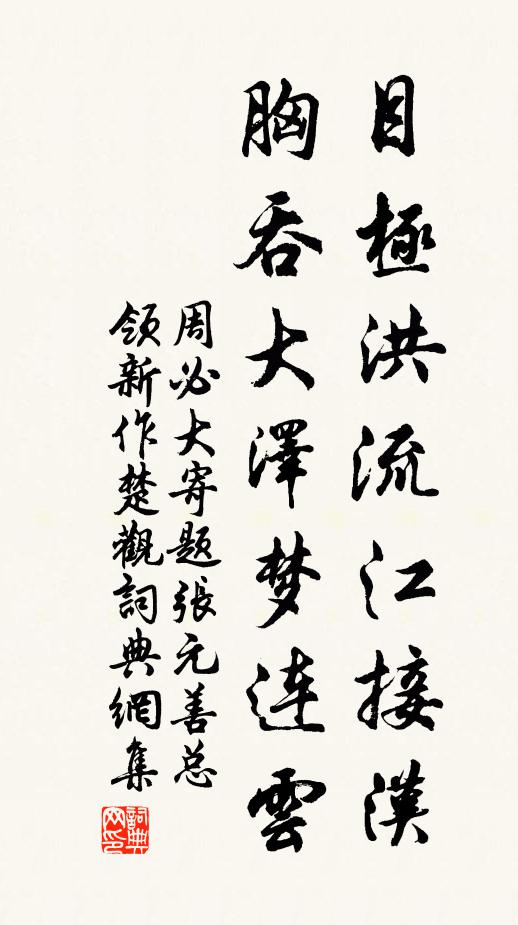 目極洪流江接漢
胸吞大澤梦連雲
周必大寄题張元善总
领新作楚觀詞典網集
詞典网印